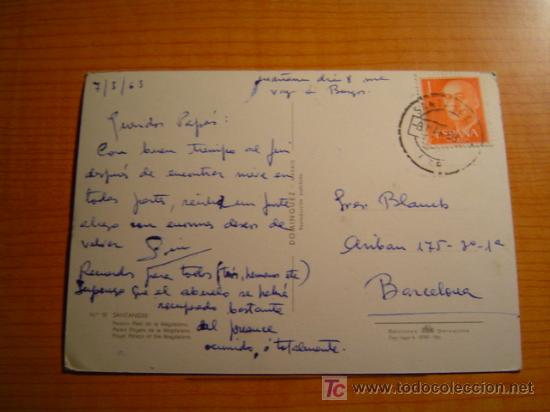 7/3/63
mañana día 8 me
voy a Burgos.
Queridos Papás:
Con buen tiempo al fin
después de encontrar nieve en
todas partes, recibid un fuerte
abrazo con enormes deseos de
volver
Recuerdos para todos (tios, hermanos etc)
Supongo que el abuelo se habrá
recuperado bastante
del percance
ocurrido, o totalmente.
1
ESPAÑA
Sres. Blanch
Aribau 175-2º-1ª
Barcelona
DOMINGUEZ
Reproducción prohibida
N.º 19 SANTANDER
Palacio Real de la Magdalena.
Palais Royale de la Magdalena.
Royal Palace of the Magdalena.
Ediciones
Dep. legal B.
TC
todocoleccion.net